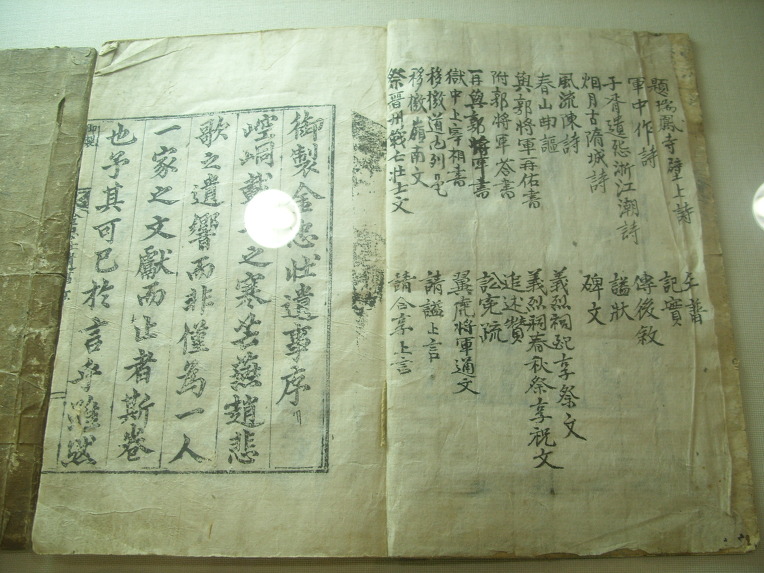 題瑞鳳寺壁上詩
軍中作詩
子胥遺怨浙江潮詩
烟月古隋城詩
風流陳詩
春山曲謳
與郭將軍再佑書
附郭將軍答書
再與郭將軍書
獄中上宰相書
移檄道內列邑
移檄嶺南文
祭晉州戰亡壯士文
年譜
記實
傳後敘
諡狀
碑文
義烈祠配享祭文
義烈祠春秋祭享祝文
追述贊
訟寃疏
翼虎將軍通文
請諡上言
請合享上言
御製金忠壯遺事序
崆峒戴之寒芒燕趙悲
歌之遺響而非僅為一人
一家之文獻而止者斯卷
也予其可已於言乎雖然